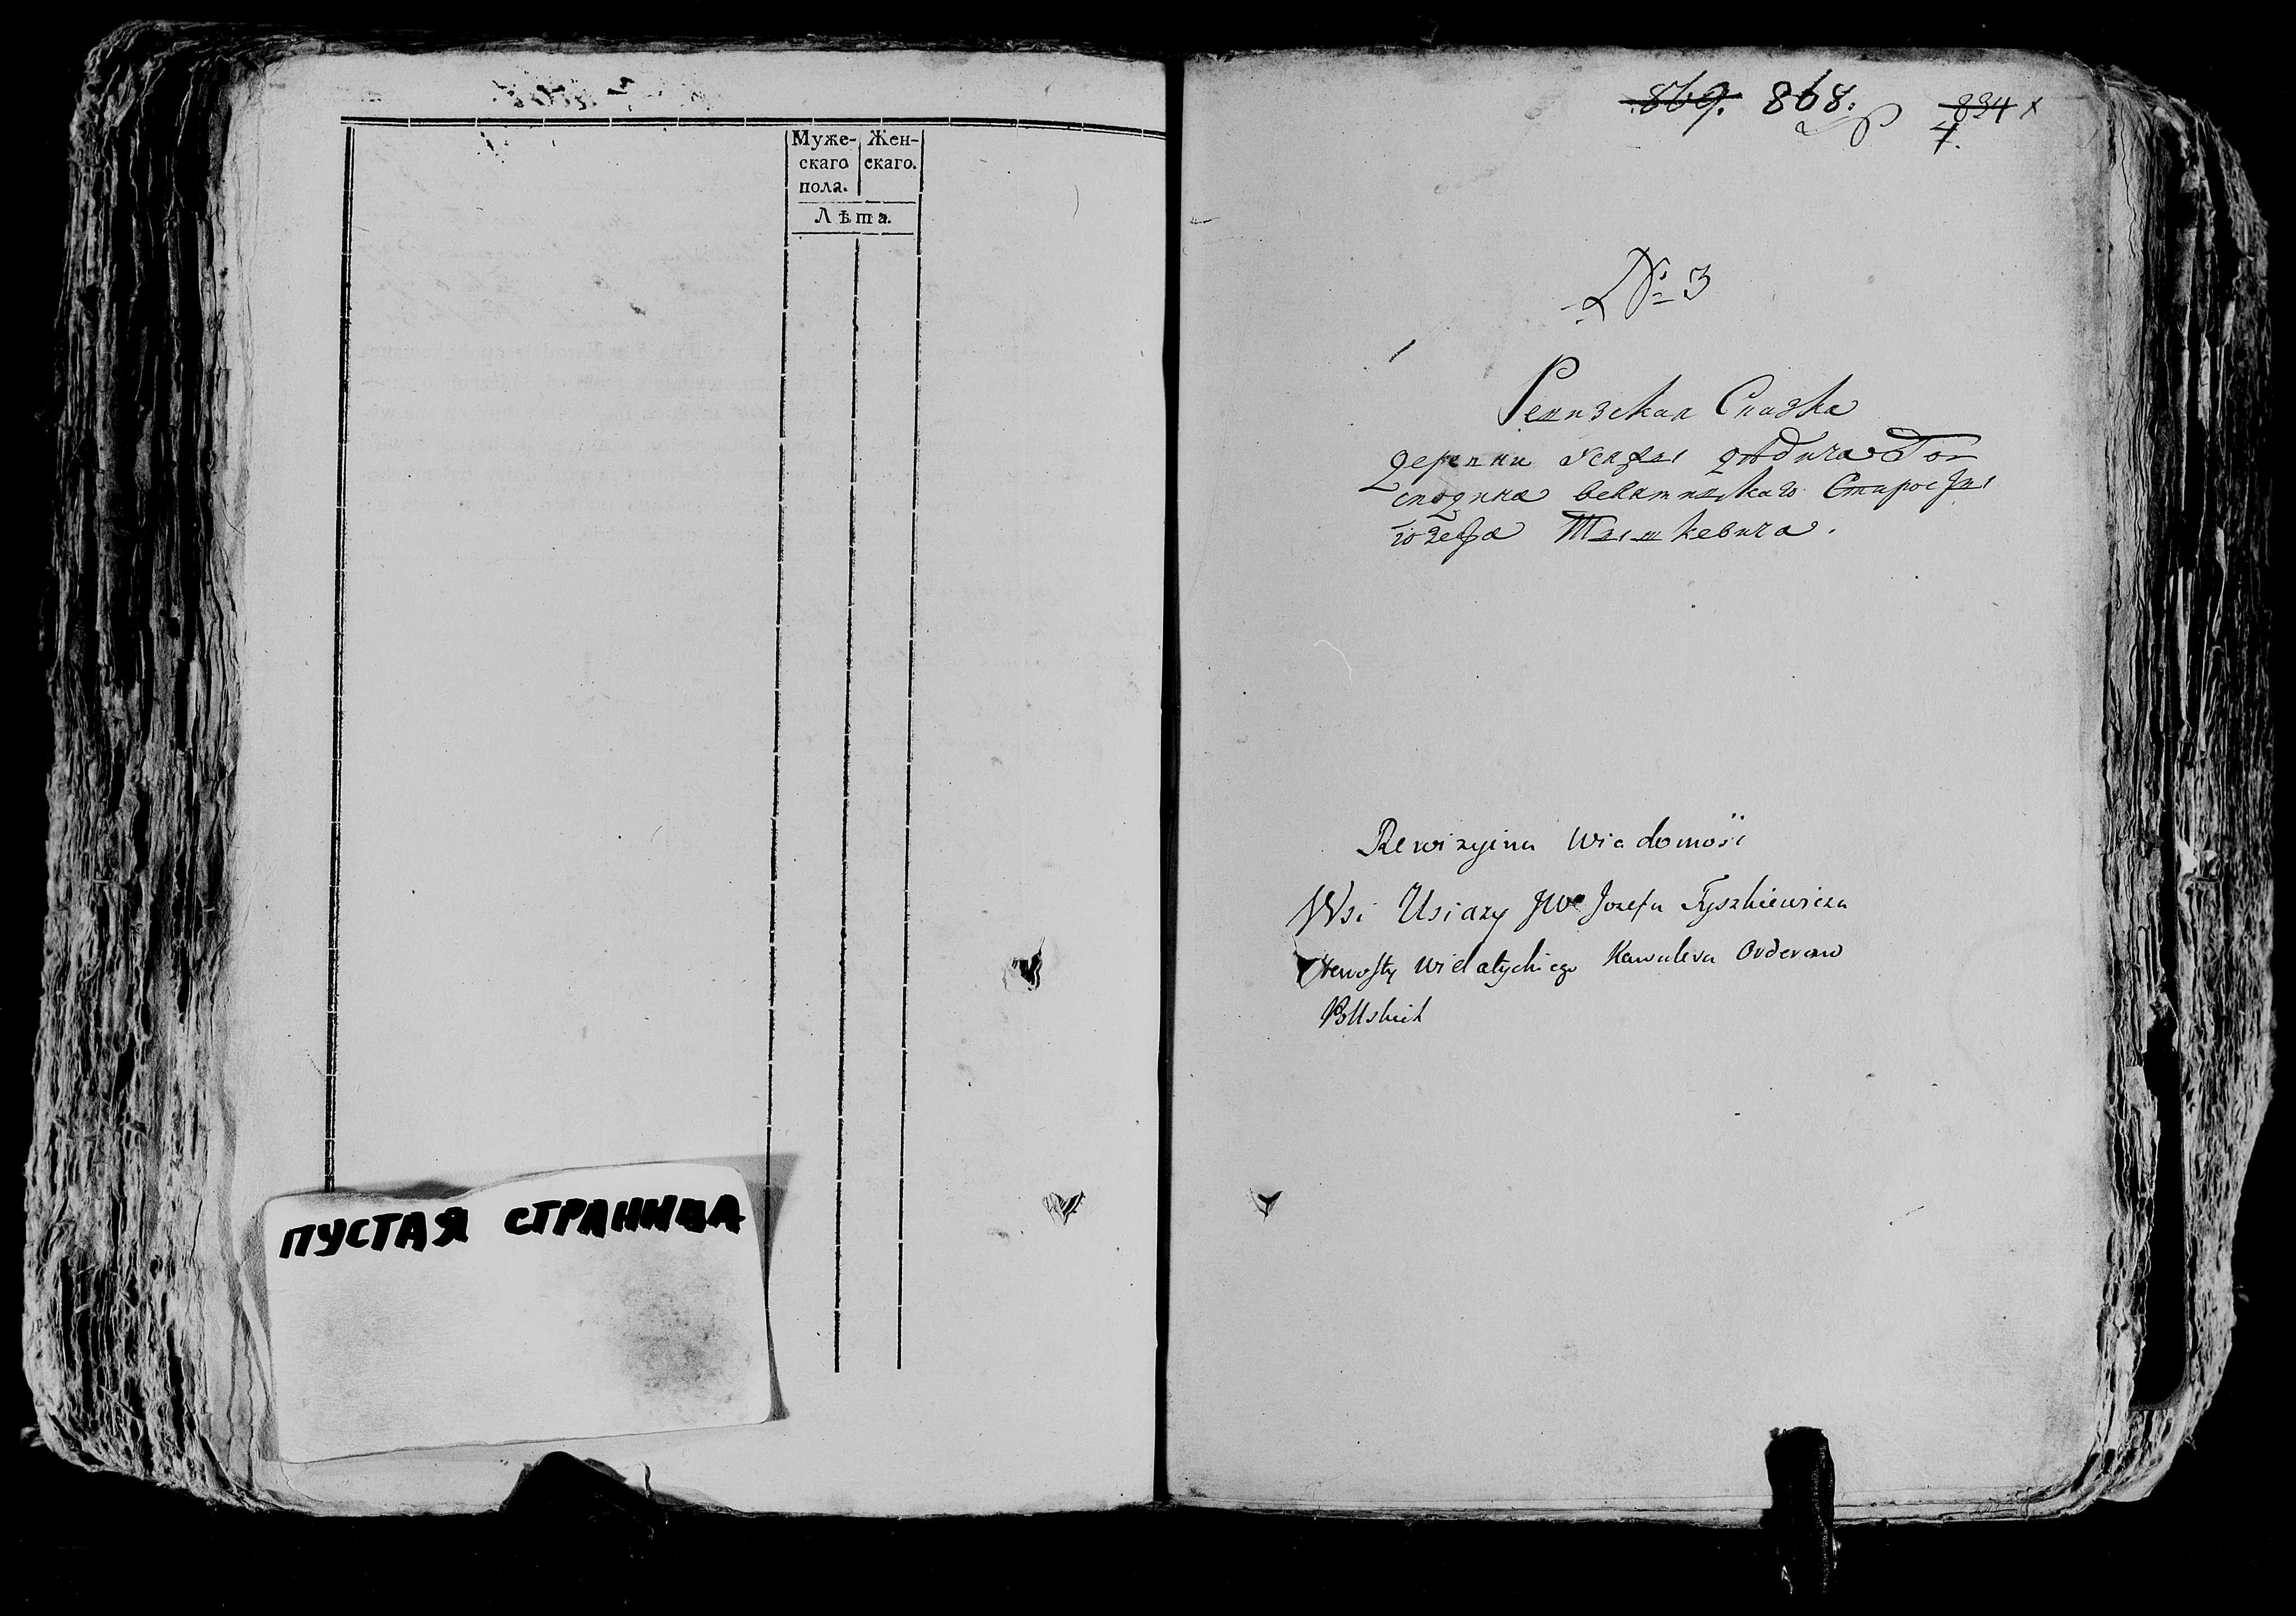 Муже- Жен-
скаго скаго.
пола.
Лѣта.
ПУСТАЯ СТРАНИЦА
869. 868. 834
№ 3
Ревизская Сказка
деревни Усяжы дѣдича Гос
подина велятыцкаго Старосты
Юзефа Тышкевича.
Rewizyina Wiadomość
Wsi Usiazy JWo Jozefa Tyszkiewicza
Starosty Wielatyckiego Kawalera Orderow
Polskich